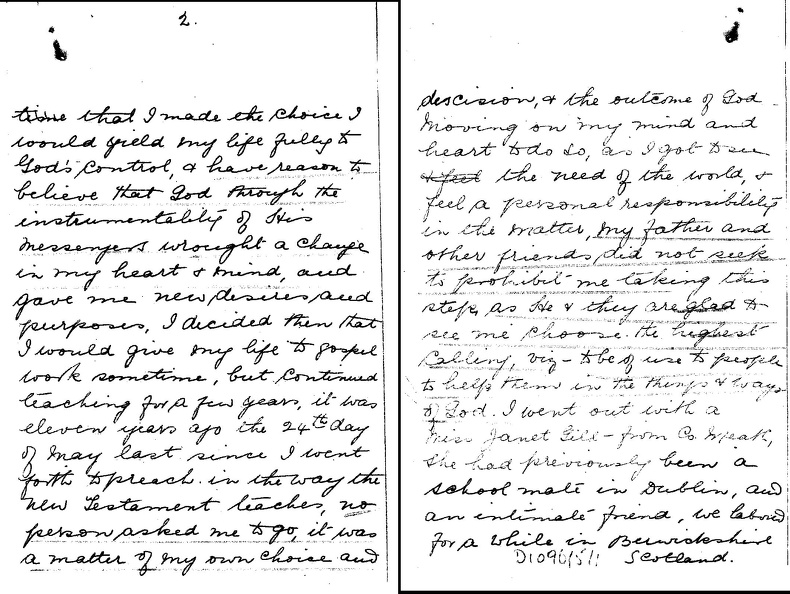 2.
time that I made the choice I
would yield my life fully to
God's control, & have reason to
believe that God through the
instrumentality of His
Messengers wrought a change
in my heart & mind, and
gave me new desires and
purposes, I decided then that
I would give my life to gospel
work sometime, but continued
teaching for a few years, it was
eleven years ago the 24th day
of May last since I went
forth to preach in the way the
New Testament teaches, no
person asked me to go, it was
a matter of my own choice and
descision, & the outcome of God
Moving on my mind and
heart to do so, as I got to see
& feel the need of the world, &
feel a personal responsibility
in the matter, my father and
other friends did not seek
to prohibit me taking this
step, as He & they are glad to
see me choose the highest
Calling, viz - to be of use to people
to help them in the things & ways
of God. I went out with a
Miss Janet Gill - from Co. Meath,
She had previously been a
school mate in Dublin, and
an intimate friend, we labored
for a while in Berwickshire
D1096/5/1 Scotland.